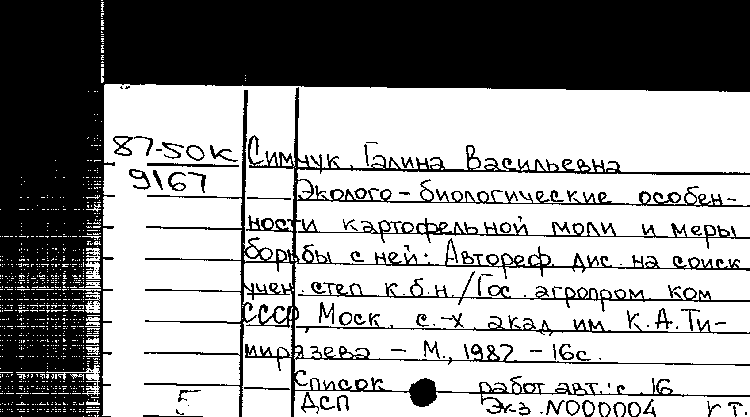 87-50К Симчук, Галина Васильевна
9167 Эколого-биологические особен-
ности картофельной моли и меры
борьбы с ней: Автореф. дис. на соиск.
учен. степ. к.б.н./Гос. агропром. ком.
СССР, Моск. с.-х. акад. им. К.А.Ти-
мирязева - М., 1987 - 16с.
Список работ авт.: с. 16
5 ДСП Экз. N000004 г.т.